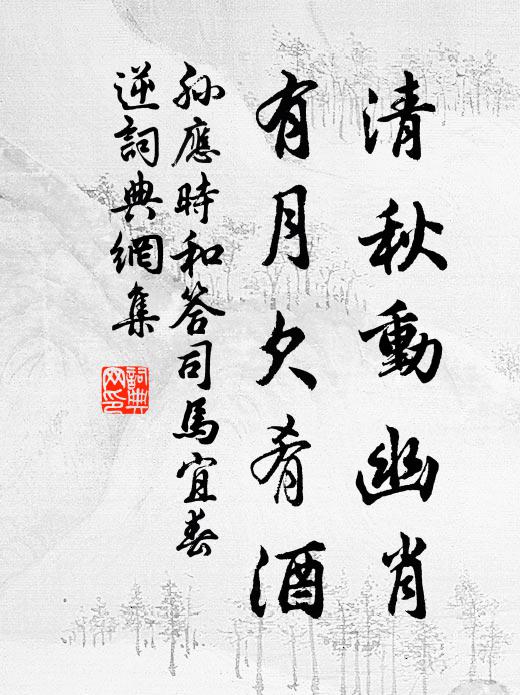 清秋動幽肖
有月欠肴酒
孙應時和答司馬宜春
逆詞典網集
詞典網印